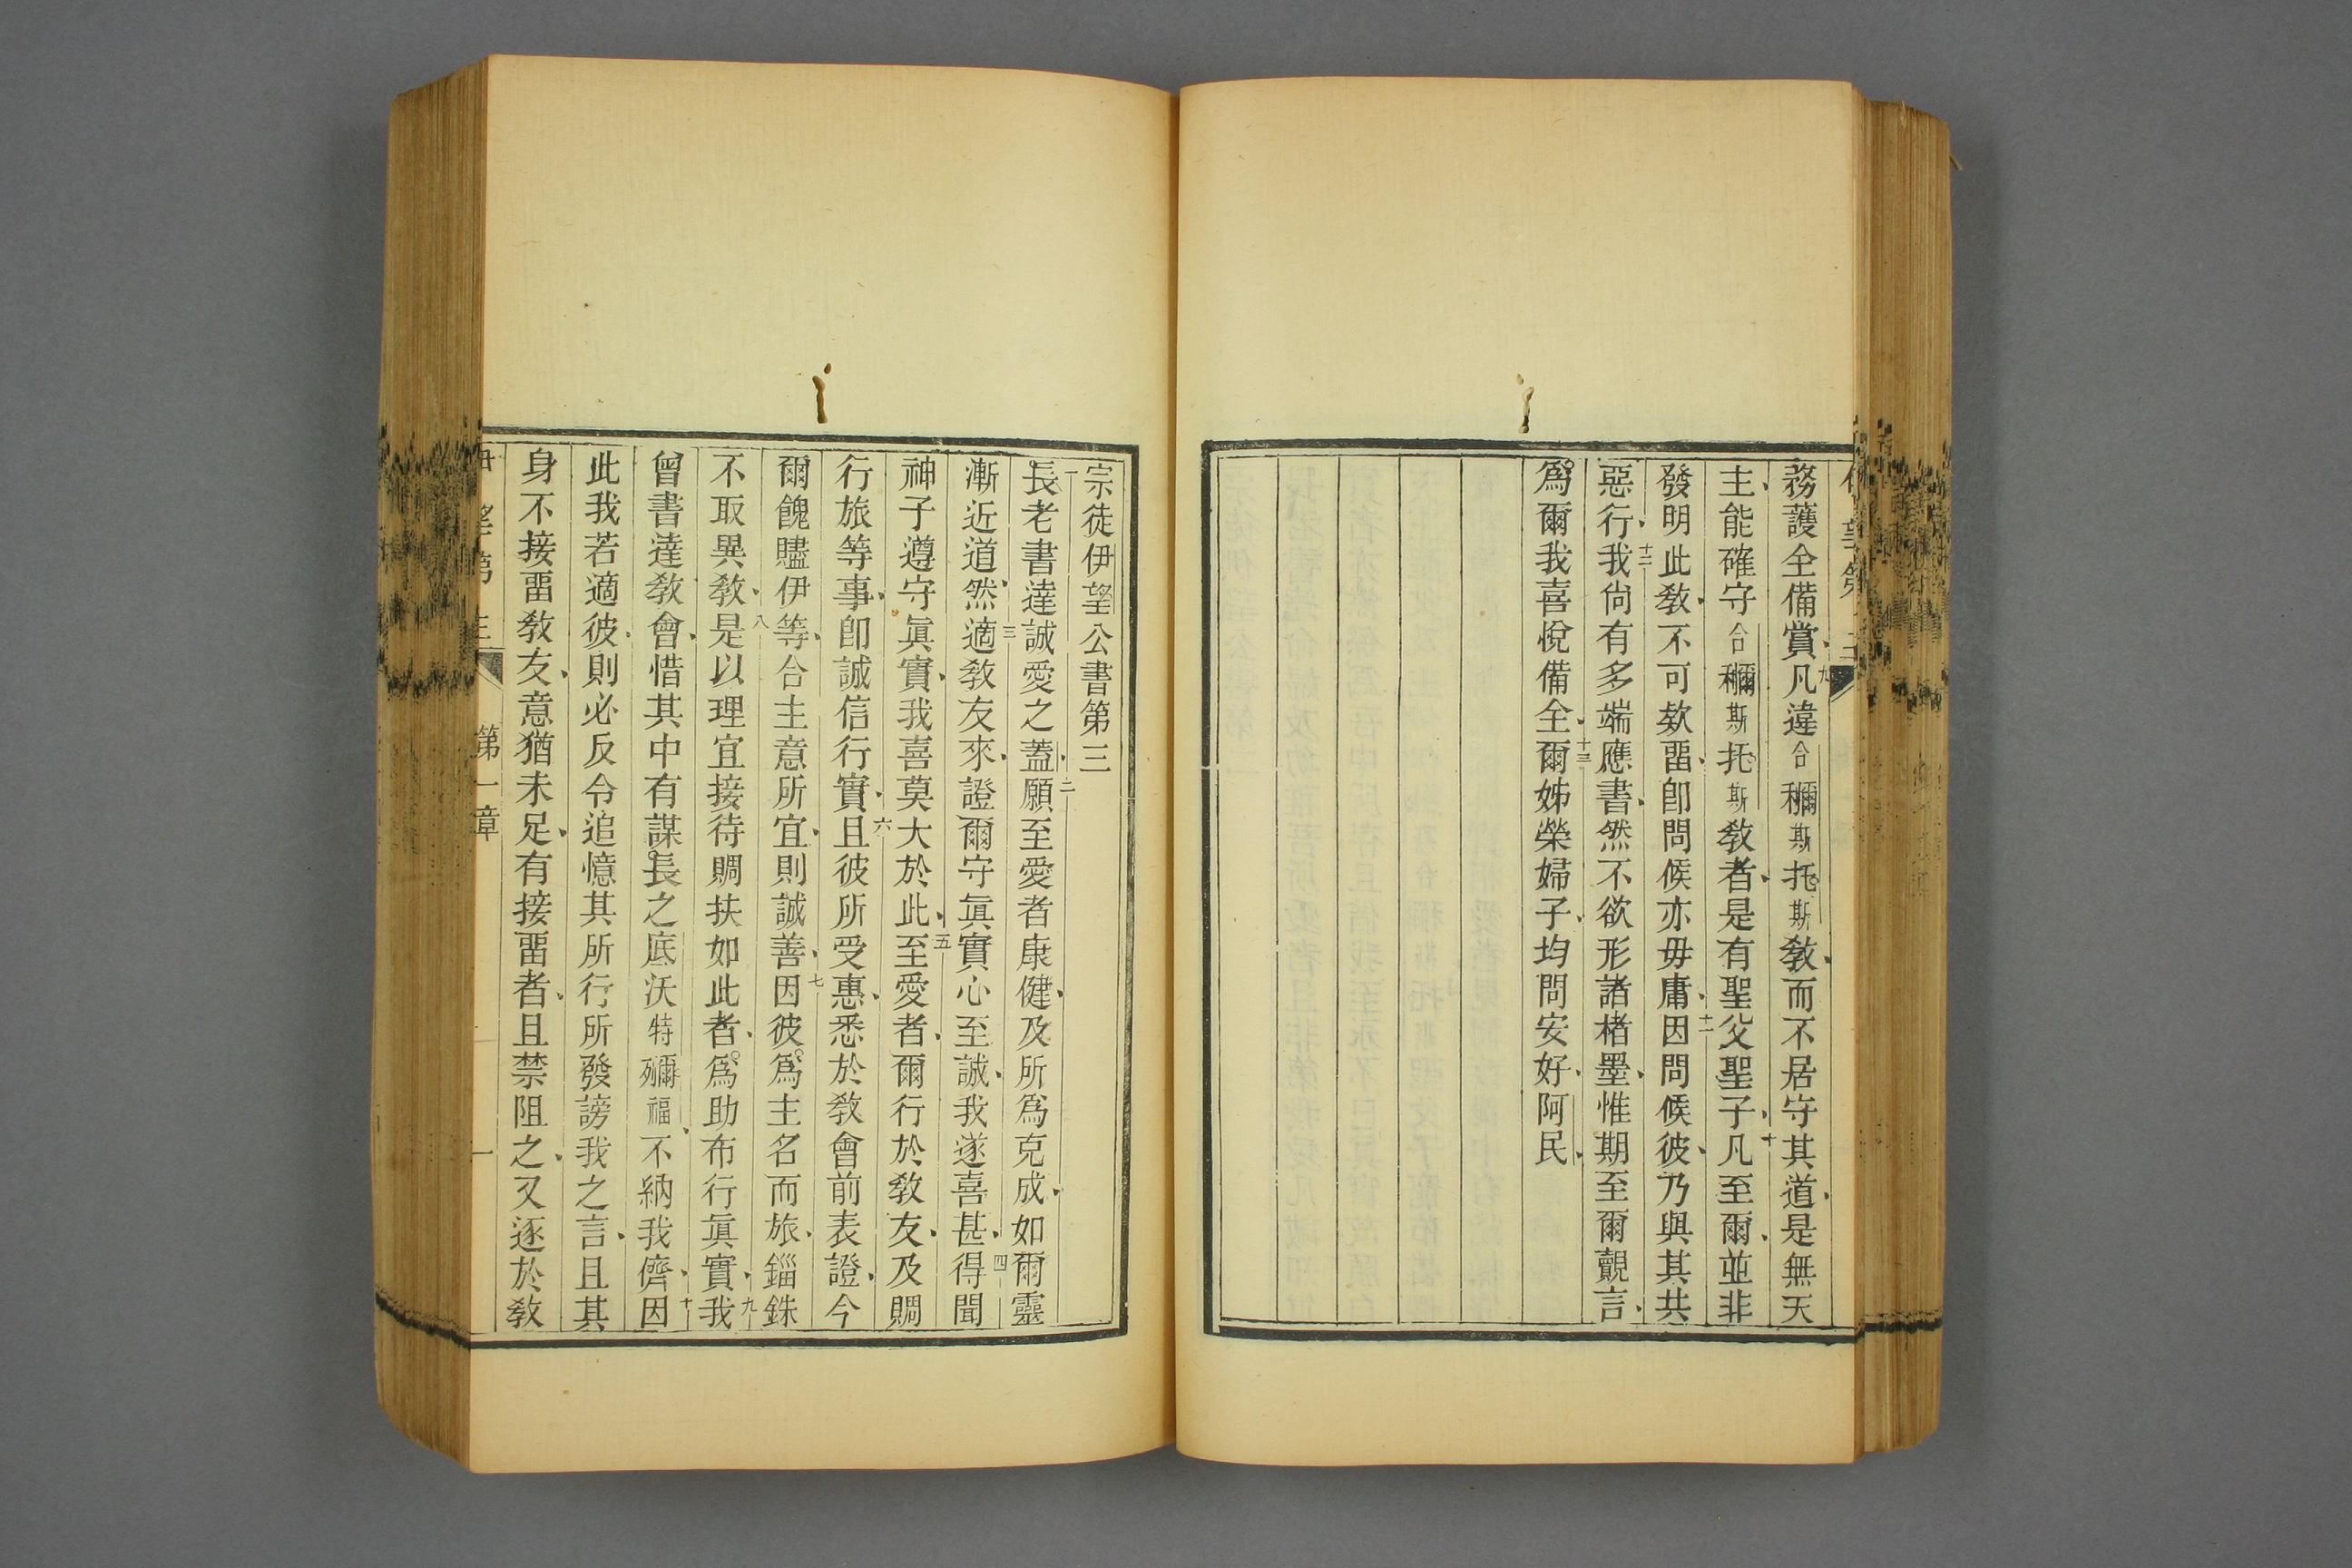 務護全備賞九凡違合穪斯托斯敎而不居守其道是無天
主能確守合穪斯托斯敎者是有聖父聖子十凡至爾並非
發明此敎不可欵畱卽問候亦毋庸十一因問候彼乃與其共
惡行十二我尙有多端應書然不欲形諸楮墨惟期至爾覿言
爲爾我喜悅備全十三爾姊榮婦子均問安好阿民
宗徒伊望公書第三
一長老書達誠愛之二蓋願至愛者康健及所爲克成如爾靈
漸近道三然適敎友來證爾守眞實心至誠我遂喜甚四得聞
神子遵守眞實我喜莫大於此五至愛者爾行於敎友及賙
行旅等事卽誠信行實六且彼所受惠悉於敎會前表證今
爾餽贐伊等合主意所宜則誠善七因彼爲主名而旅錙銖
不取異敎八是以理宜接待賙扶如此者爲助布行眞實九我
曾書達敎會惜其中有謀長之底沃特爾福不納我儕十因
此我若適彼則必反令追憶其所行所發謗我之言且其
身不接畱敎友意猶未足有接畱者且禁阻之又逐於敎
第一章
一